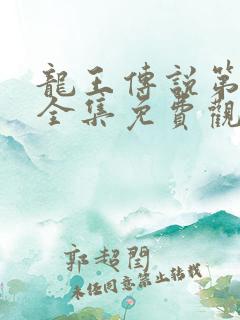 龍王傳說第
全集免費觀
郭超閏
未经同意禁止转载